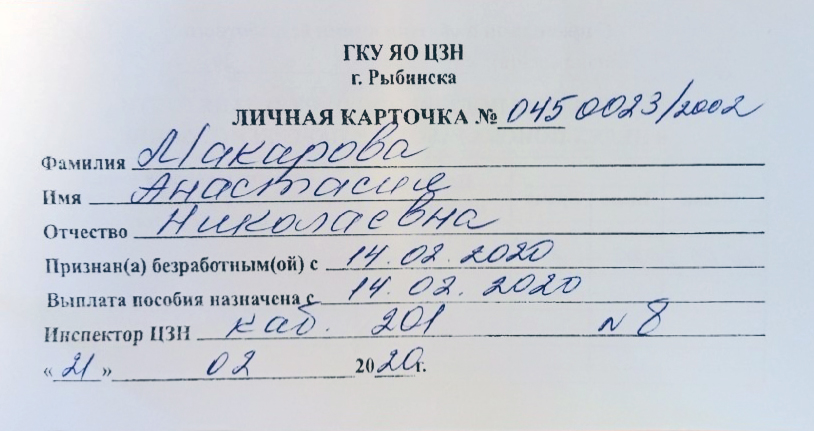 ГКУ ЯО ЦЗН
г. Рыбинска
ЛИЧНАЯ КАРТОЧКА № 0450023/2002
Фамилия Макарова
Имя Анастасия
Отчество Николаевна
Признан(а) безработным(ой) с 14.02.2020
Выплата пособия назначена с 14.02.2020
Инспектор ЦЗН каб. 201 №8
«21» 02 2020г.